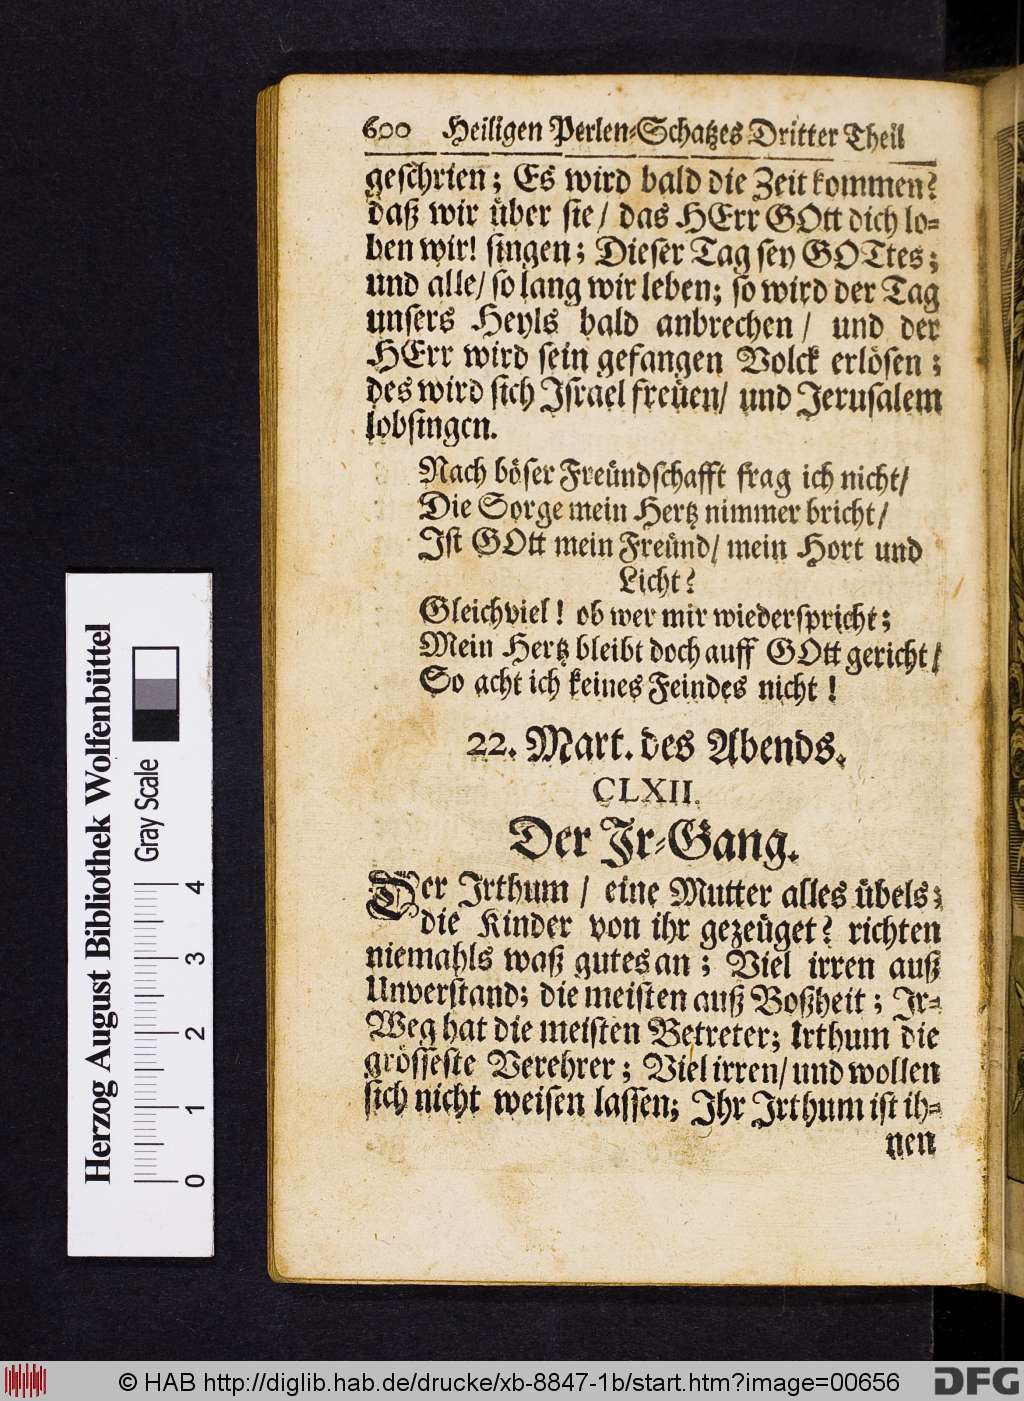 600 Heiligen Perlen-Schatzes Dritter Theil
geschrien; Es wird bald die Zeit kommen?
daß wir über sie/ das HErr GOtt dich lo-
ben wir! singen; Dieser Tag sey GOTtes;
und alle/ so lang wir leben; so wird der Tag
unsers Heyls bald anbrechen/ und der
HErr wird sein gefangen Volck erlösen;
des wird sich Israel freüen/ und Jerusalem
lobsingen.
Nach böser Freündschafft frag ich nicht/
Die Sorge mein Hertz nimmer bricht/
Ist GOtt mein Freünd/ mein Hort und
Licht?
Gleichviel! ob wer mir wiederspricht;
Mein Hertz bleibt doch auff GOtt gericht/
So acht ich keines Feindes nicht!
22. Mart. des Abends.
CLXII.
Der Ir-Gang.
Der Irthum / eine Mutter alles übels;
die Kinder von ihr gezeüget? richten
niemahls waß gutes an; Viel irren auß
Unverstand; die meisten auß Boßheit; Ir-
Weg hat die meisten Betreter; Irthum die
grösseste Verehrer; Viel irren/ und wollen
sich nicht weisen lassen; Ihr Irthum ist ih-
nen
Herzog August Bibliothek Wolfenbüttel
Gray Scale
0 1 2 3 4
© HAB http://diglib.hab.de/drucke/xb-8847-1b/start.htm?image=00656
DFG